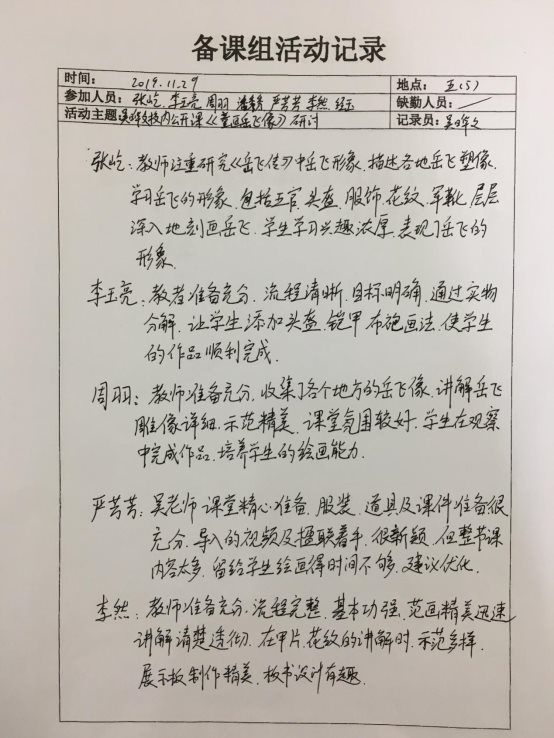 备课组活动记录
时间： 2019.11.29 地点： 五(5)
参加人员： 张屹 李玉亮 周羽 严芳芳 李然 缺勤人员：
活动主题 校内公开课《画岳飞像》研讨 记录员：吴晔文
张屹：教师注重研究《岳飞传》中岳飞形象.描述各地岳飞塑像.
学习岳飞的形象.包括五官.头盔.服饰.花纹.军靴.层层
深入地刻画岳飞.学生学习兴趣浓厚.表现了岳飞的
形象.
李玉亮：教者准备充分.流程清晰.目标明确.通过实物
分解.让学生添加头盔.铠甲布袍画法.使学生
的作品顺利完成.
周羽：教师准备充分.收集了各个地方的岳飞像.讲解岳飞
雕像详细.示范精美.课堂氛围较好.学生在观察
中完成作品.培养学生的绘画能力.
严芳芳：吴老师课堂精心准备.服装.道具及课件准备很
充分.导入的视频及楹联着手.很新颖.但整节课
内容太多.留给学生绘画得时间不够.建议优化.
李然：教师准备充分.流程完整.基本功强.范画精美迅速
讲解清楚透彻.在甲片.花纹的讲解时.示范多样.
展示板制作精美.板书设计有趣.